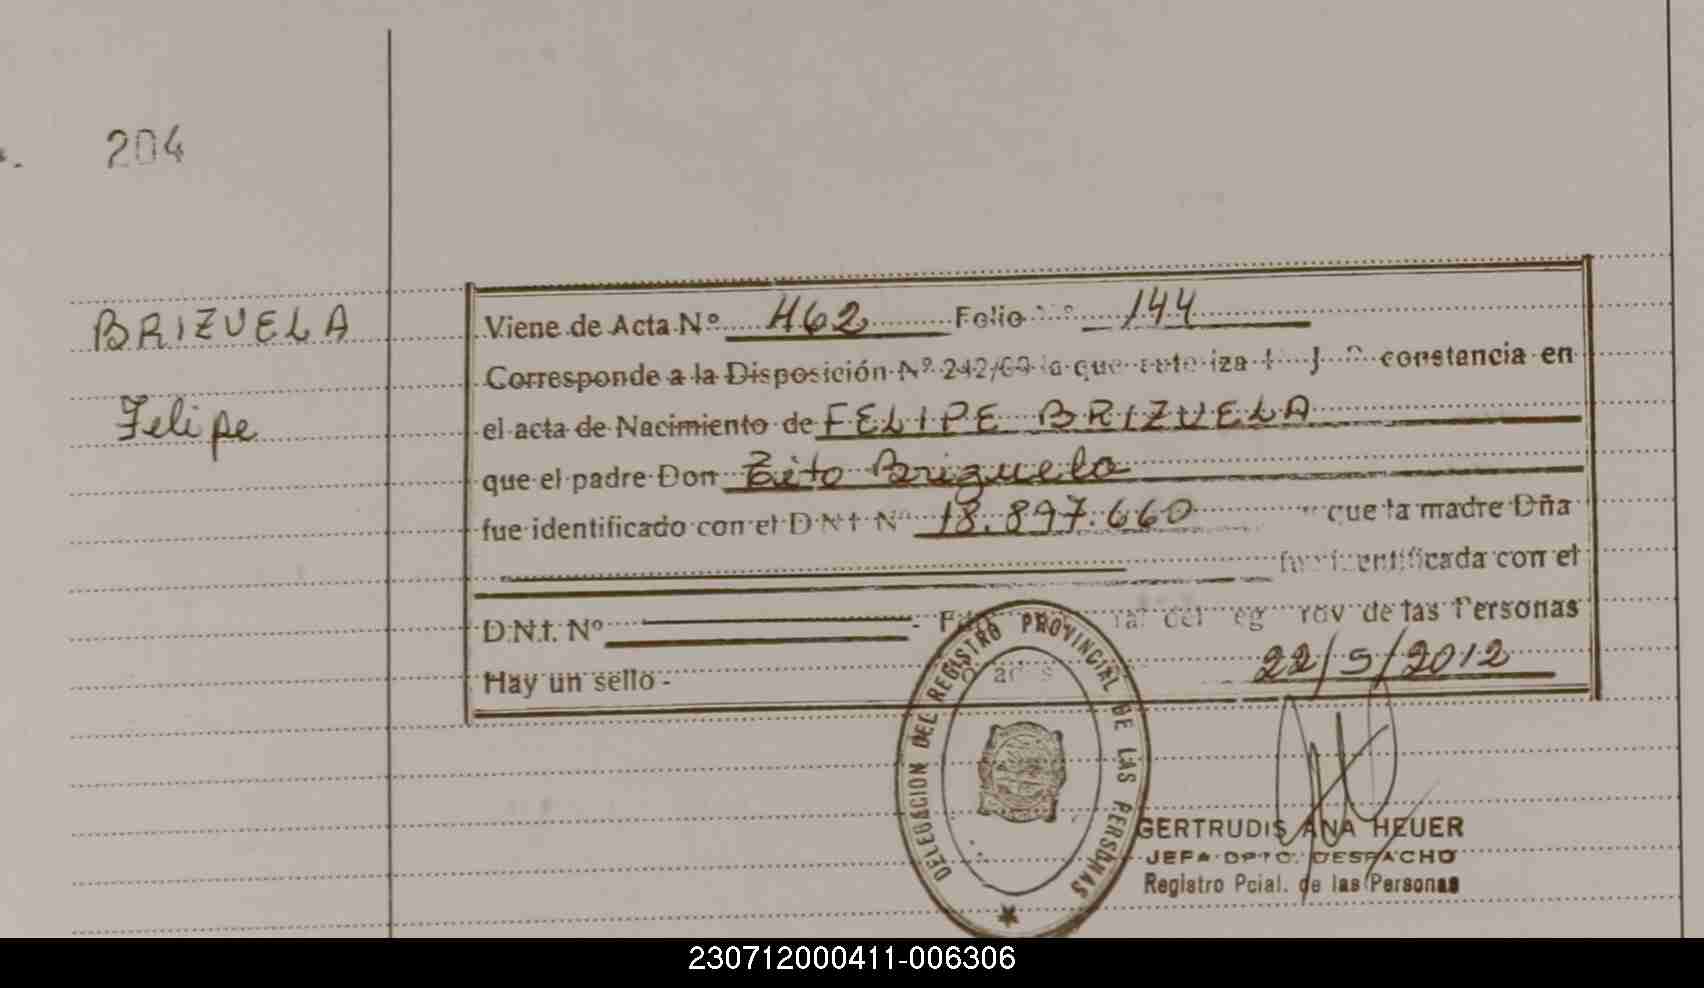 204
BRIZUELA
Felipe
Viene de Acta Nº 462 Folio Nº 144
Corresponde a la Disposición Nº 242/ la que constancia en
el acta de Nacimiento de FELIPE BRIZUELA
que el padre Don Brizuela
fue identificado con el D N I Nº 18.897.660 que la madre Dña
identificada con el
D.N.I. Nº de las Personas
Hay un sello - 22/5/2012
DELEGACION DEL REGISTRO PROVINCIAL DE LAS PERSONAS
GERTRUDIS ANA HEUER
JEFA DPTO. DESPACHO
Registro Pcial. de las Personas
230712000411-006306